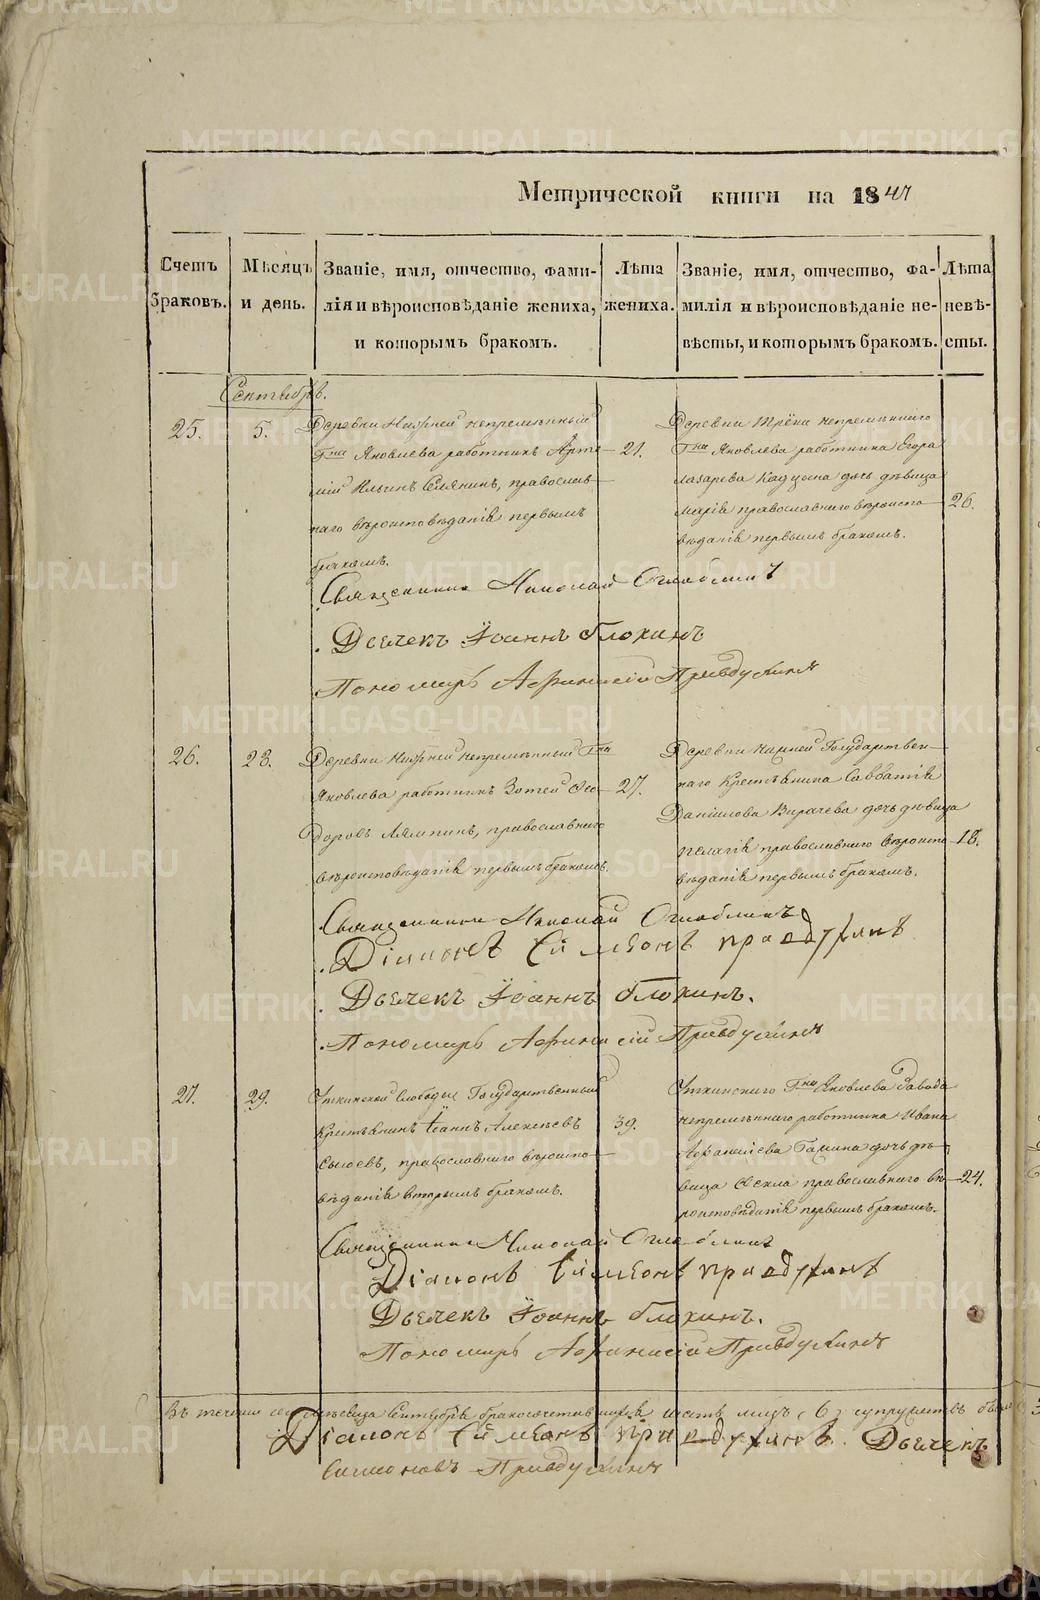 METRIKI.GASO-URAL.RU
Метрической книги на 1847
Счетъ браковъ.
Мѣсяцъ и день.
Званіе, имя, отчество, фами-
лія и вѣроисповѣданіе жениха,
и которымъ бракомъ.
Лѣта жениха.
Званіе, имя, отчество, фа-
милія и вѣроисповѣданіе не-
вѣсты, и которымъ бракомъ.
Лѣта невѣ-
сты.
Сентябрь.
25.
5.
Деревни Нижней непремѣнный
Гна Яковлева работникъ Арте-
мій Ильинъ православ-
наго вѣроисповѣданія первымъ
бракомъ.
21.
Деревни Трёки непремѣннаго
Гна Яковлева работника Егора
Лазарева дочь дѣвица
Марія православнаго вѣроиспо-
вѣданія первымъ бракомъ.
26.
Священникъ Николай Оглоблинъ
Дьячекъ Іоаннъ Блохинъ
Пономарь Афанасій Правдухинъ
26.
23.
Деревни Нижней непремѣнный Гна
Яковлева работникъ Зотей Фео-
доровъ Лямпинъ, православнаго
вѣроисповѣданія первымъ бракомъ.
27.
Деревни Государствен-
наго Крестьянина Савватія
Данилова Вирачева дочь дѣвица
Пелагія православнаго вѣроиспо-
вѣданія первымъ бракомъ.
18.
Священникъ Николай Оглоблинъ
Діаконъ Симеонъ Правдухинъ
Дьячекъ Іоаннъ Блохинъ.
Пономарь Афанасій Правдухинъ
27.
29.
Уткинской Слободы Государственный
Крестьянинъ Іоаннъ Алексѣевъ
Сысоевъ, православнаго вѣроиспо-
вѣданія вторымъ бракомъ.
39.
Уткинскаго Гна Яковлева Завода
непремѣннаго работника Ивана
Афанасіева Галина дочь дѣ-
вица Ѳекла православнаго вѣ-
роисповѣданія первымъ бракомъ.
24.
Священникъ Николай Оглоблинъ
Діаконъ Симеонъ Правдухинъ
Дьячекъ Іоаннъ Блохинъ.
Пономарь Афанасій Правдухинъ
Въ теченіи мѣсяца Сентября бракосочетавшихся шесть лицъ (6) супружествъ
Діаконъ Симеонъ Правдухинъ. Дьячекъ
Симоновъ Правдухинъ